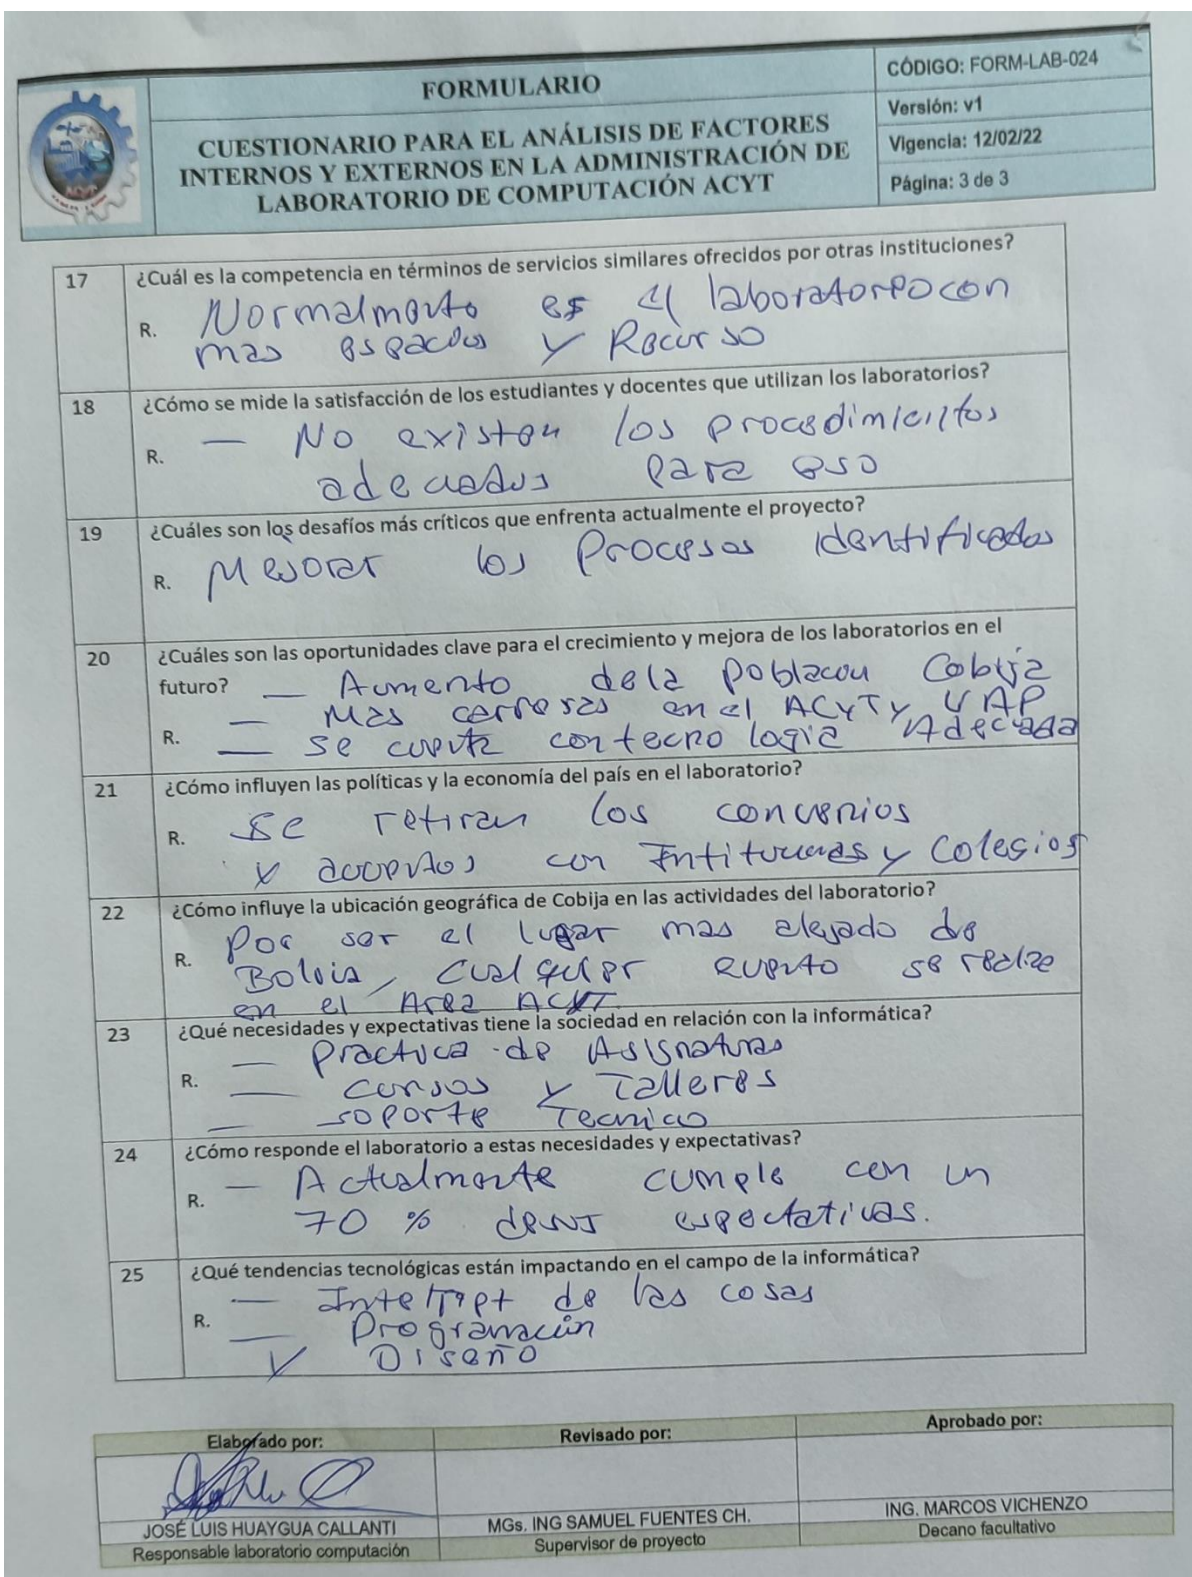 FORMULARIO
CUESTIONARIO PARA EL ANÁLISIS DE FACTORES
INTERNOS Y EXTERNOS EN LA ADMINISTRACIÓN DE
LABORATORIO DE COMPUTACIÓN ACYT
CÓDIGO: FORM-LAB-024
Versión: v1
Vigencia: 12/02/22
Página: 3 de 3
ACYT
17 ¿Cuál es la competencia en términos de servicios similares ofrecidos por otras instituciones?
R. Normalmente es el laboratorio con
mas espacios y Recurso
18 ¿Cómo se mide la satisfacción de los estudiantes y docentes que utilizan los laboratorios?
R. — No existen los procedimientos
adecuados para eso
19 ¿Cuáles son los desafíos más críticos que enfrenta actualmente el proyecto?
R. Mejorar los Procesos identificados
20 ¿Cuáles son las oportunidades clave para el crecimiento y mejora de los laboratorios en el
futuro? — Aumento de la poblacion Cobija
— Mas carreras en el ACyT y UAP
R. — se cuenta con tecnologia Adecuada
21 ¿Cómo influyen las políticas y la economía del país en el laboratorio?
R. se retiran los convenios
y acuerdos con Intituciones y Colegios
22 ¿Cómo influye la ubicación geográfica de Cobija en las actividades del laboratorio?
R. Por ser el lugar mas alejado de
Bolivia, cualquier evento se realize
en el Area ACYT
23 ¿Qué necesidades y expectativas tiene la sociedad en relación con la informática?
— practica de Asignaturas
R. — cursos y Talleres
— soporte Tecnico
24 ¿Cómo responde el laboratorio a estas necesidades y expectativas?
R. — Actualmente cumple con un
70 % espectativas.
25 ¿Qué tendencias tecnológicas están impactando en el campo de la informática?
— Internet de las cosas
R. — Programación
y Diseño
Elaborado por:
Revisado por:
Aprobado por:
JOSÉ LUIS HUAYGUA CALLANTI
MGs. ING SAMUEL FUENTES CH.
ING. MARCOS VICHENZO
Responsable laboratorio computación
Supervisor de proyecto
Decano facultativo